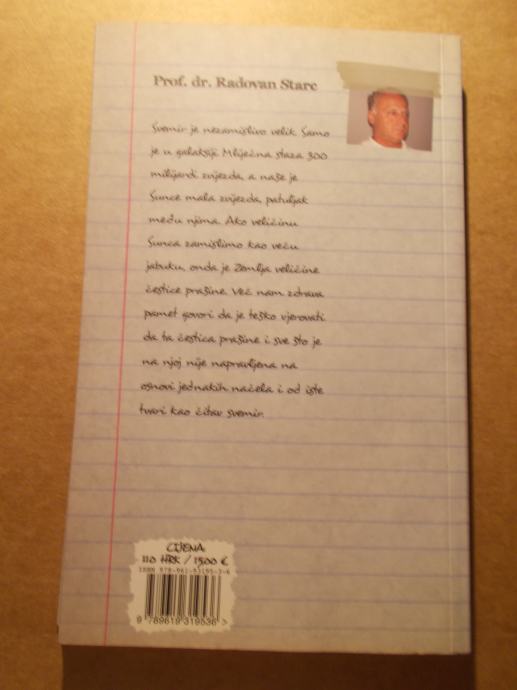 Prof. dr. Radovan Starc
Svemir je nezamislivo velik. Samo
je u galaksiji Mliječna staza 300
milijardi zvijezda, a naše je
Sunce mala zvijezda, patuljak
među njima. Ako veličinu
Sunca zamislimo kao veću
jabuku, onda je Zemlja veličine
čestice prašine. Već nam zdrava
pamet govori da je teško vjerovati
da ta čestica prašine i sve što je
na njoj nije napravljena na
osnovi jednakih načela i od iste
tvari kao čitav svemir.
CIJENA:
110 HRK / 15,00 €
ISBN 978-961-93195-3-6
9 789619 319536 >